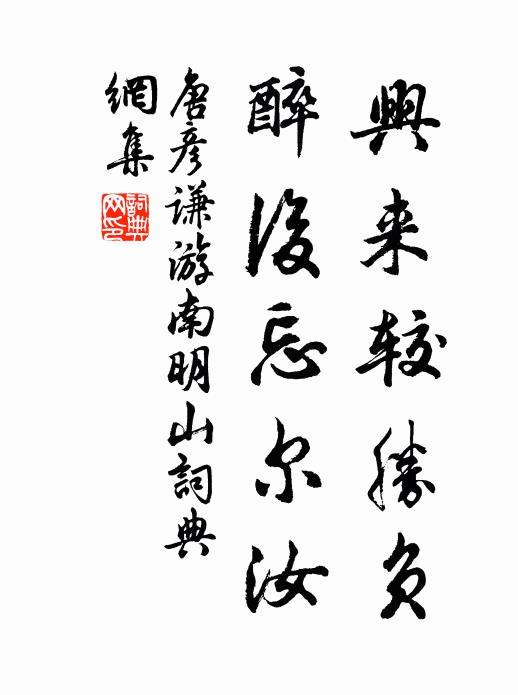 興来較勝负
醉後忘尔汝
唐彦谦游南明山詞典
網集
詞典
网印